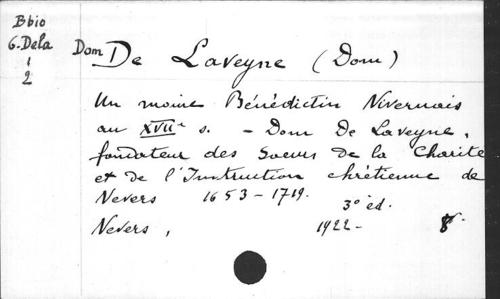 Bbio
G. Dela
1
2
Dom De Laveyne (Dom)
Un moine Bénédictin Nivernais
au XVIIe s. - Dom De Laveyne,
fondateur des Soeurs de la Charité
et de l'Instruction chrétienne de
Nevers 1653-1719. 3° éd.
Nevers, 1922- 8°.